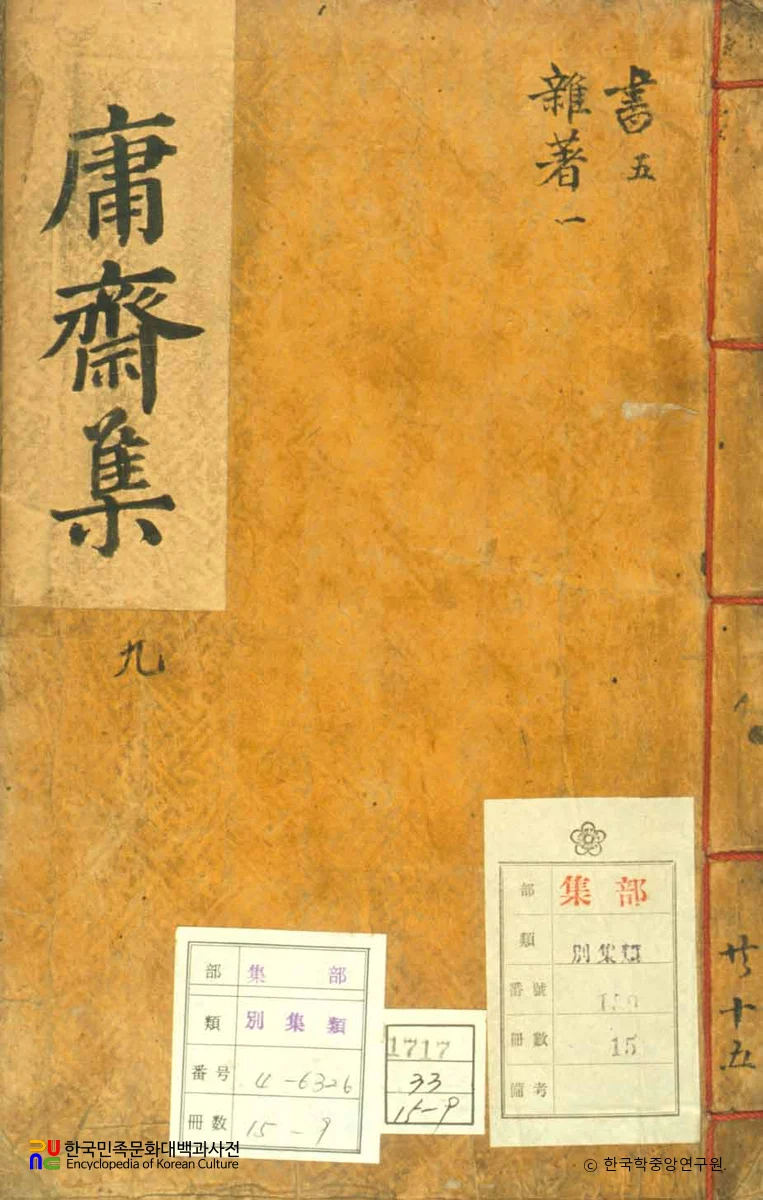 書五
雜著一
庸齋集
九
共十五
部 集部
類 別集類
番號
冊數 15
備考
部 集部
類 別集類
番号 4-6326
冊數 15-9
1717
33
15-9
한국민족문화대백과사전
Encyclopedia of Korean Culture
© 한국학중앙연구원